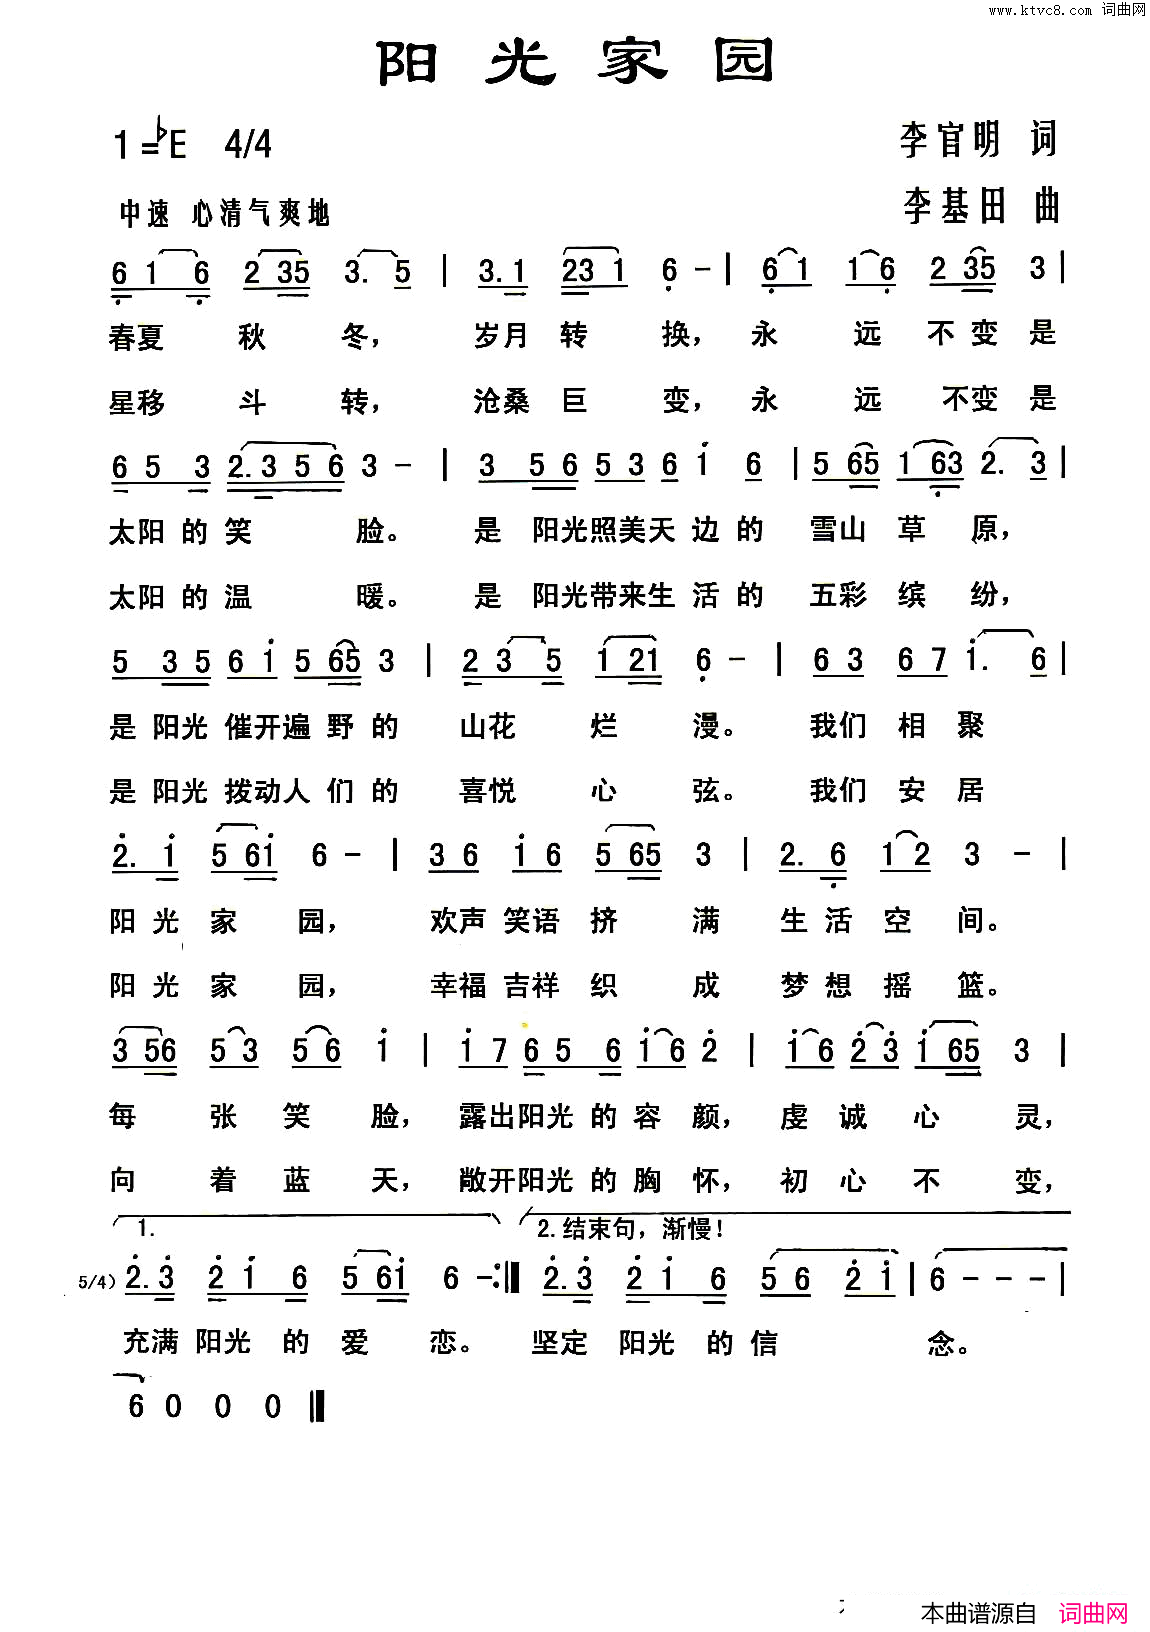 www.ktvc8.com 词曲网
阳光家园
1=♭E 4/4
李官明 词
中速 心清气爽地
李基田 曲
6 1 6 2 35 3. 5 | 3.1 23 1 6 - | 6 1 1 6 2 35 3 |
春夏 秋 冬， 岁月 转 换， 永 远 不 变 是
星移 斗 转， 沧桑 巨 变， 永 远 不变 是
6 5 3 2.3 5 6 3 - | 3 5 6 5 3 6 i 6 | 5 65 1 63 2. 3 |
太阳 的 笑 脸。 是 阳光照美天 边 的 雪山 草 原，
太阳 的 温 暖。 是 阳光带来生 活 的 五彩 缤 纷，
5 3 5 6 i 5 65 3 | 2 3 5 1 21 6 - | 6 3 6 7 i. 6 |
是 阳光 催开遍 野 的 山花 烂 漫。 我们 相 聚
是 阳光 拨动人 们 的 喜悦 心 弦。 我们 安 居
2. i 5 6i 6 - | 3 6 i 6 5 65 3 | 2. 6 1 2 3 - |
阳 光 家 园， 欢声 笑语 挤 满 生 活 空 间。
阳 光 家 园， 幸福 吉祥 织 成 梦 想 摇 篮。
3 56 5 3 5 6 i | i 7 6 5 6 i 6 2 | i 6 2 3 i 65 3 |
每 张 笑 脸， 露出阳光 的 容 颜， 虔 诚 心 灵，
向 着 蓝 天， 敞开阳光 的 胸 怀， 初 心 不 变，
1. 2.结束句，渐慢！
5/4) 2.3 2 i 6 5 6i 6 - :‖ 2.3 2 i 6 5 6 2 i | 6 - - - |
充满 阳光 的 爱 恋。 坚定 阳光 的 信 念。
6 0 0 0 ‖
本曲谱源自 词曲网